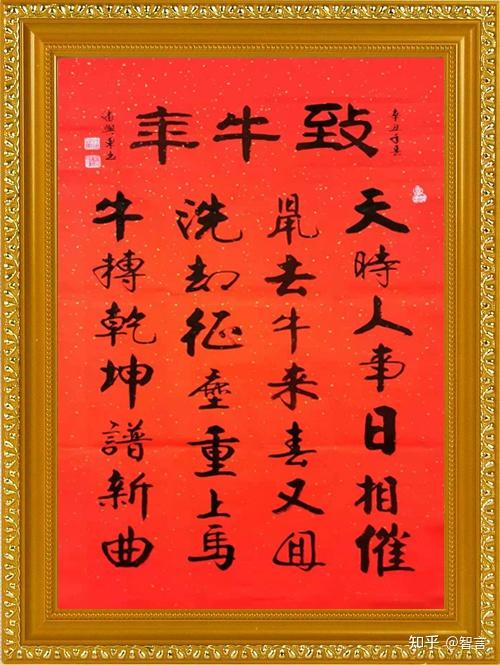 致牛年
辛丑年
天時人事日相催
鼠去牛来春又囬
洗却征塵重上馬
牛轉乾坤譜新曲
知乎 @智言